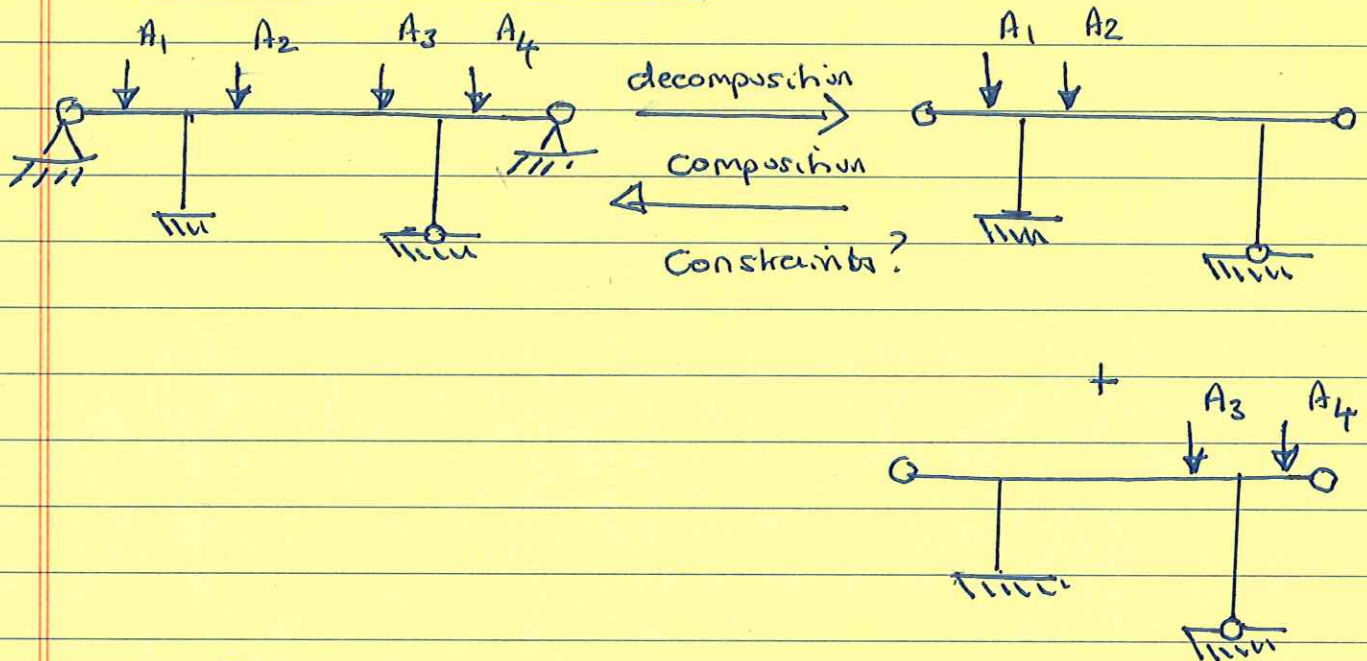 A1 A2 A3 A4
decomposition
composition
Constraints?
A1 A2
+
A3 A4